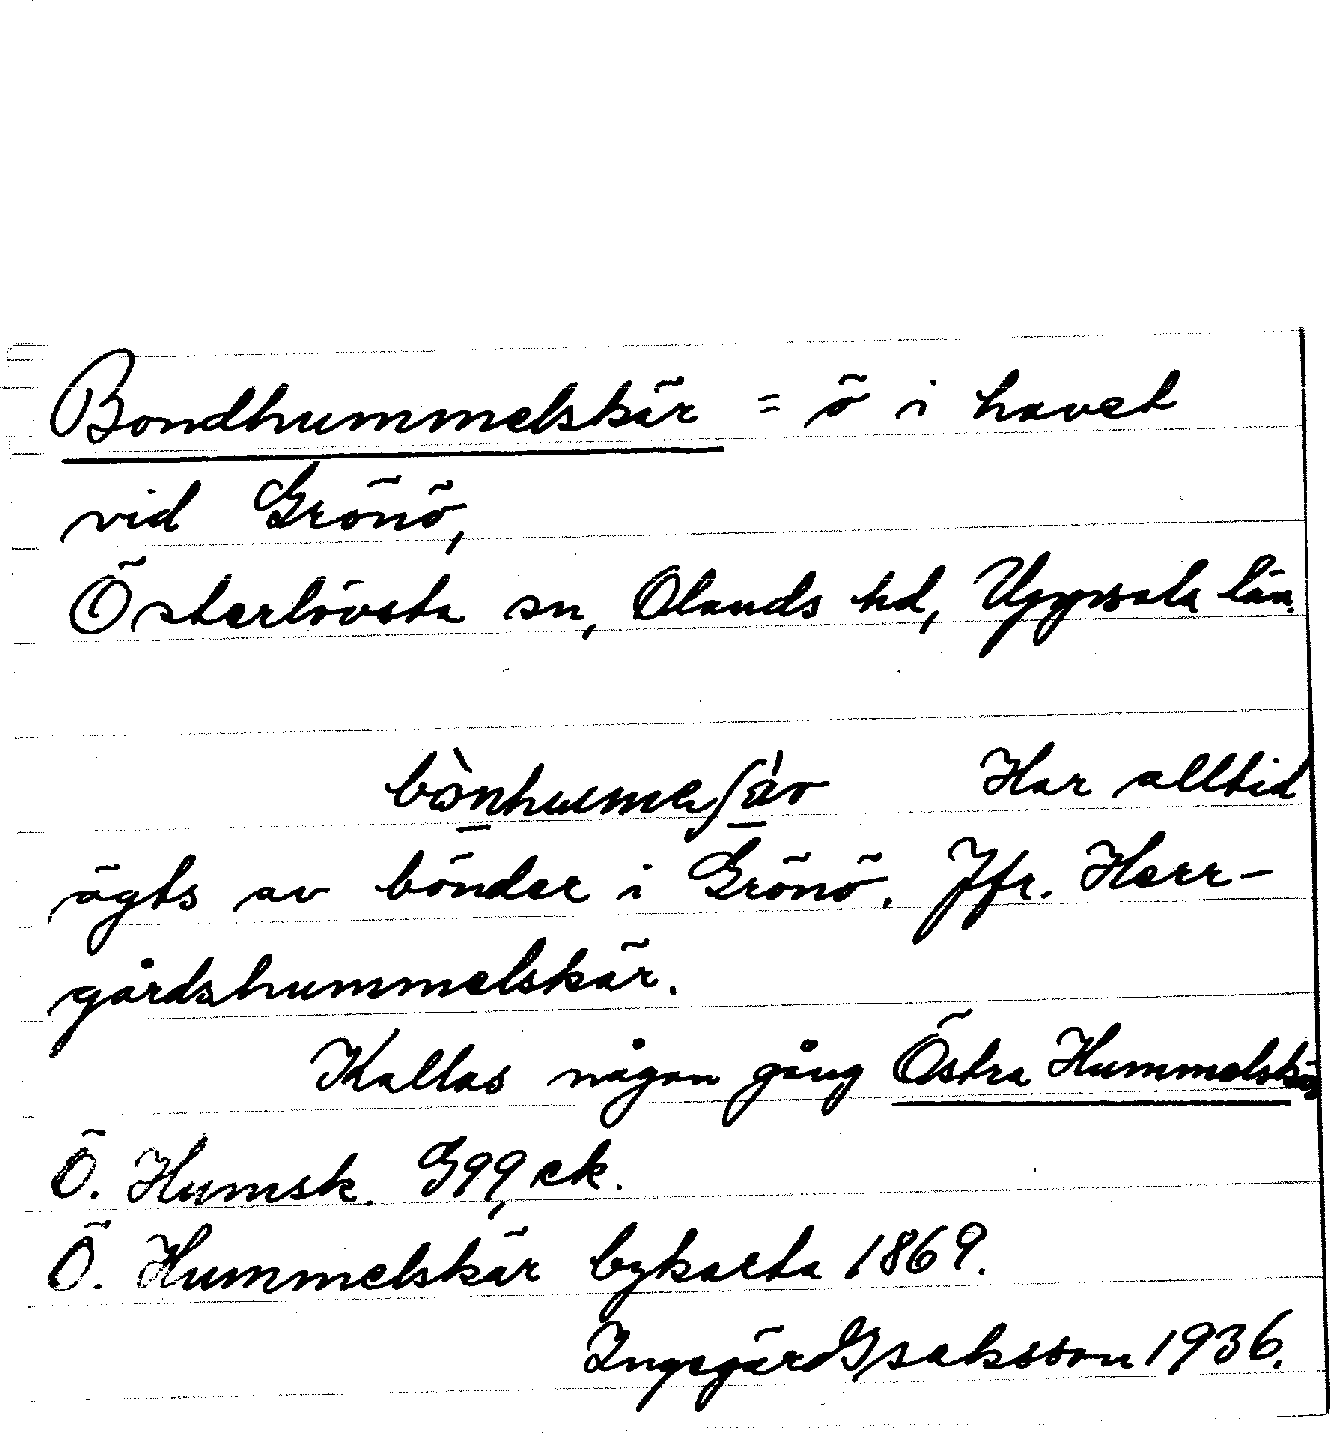 Bondhummelskär = ö i havet
vid Grönö,
Österlövsta sn, Olands hd, Uppsala län.
Har alltid
ägts av bönder i Grönö. Jfr. Herr-
gårdshummelskär.
Kallas någon gång Östra Hummelskär
Ö. Humsk. G99, ek.
Ö. Hummelskär bykarta 1869.
Ingegärd Isaksson 1936.